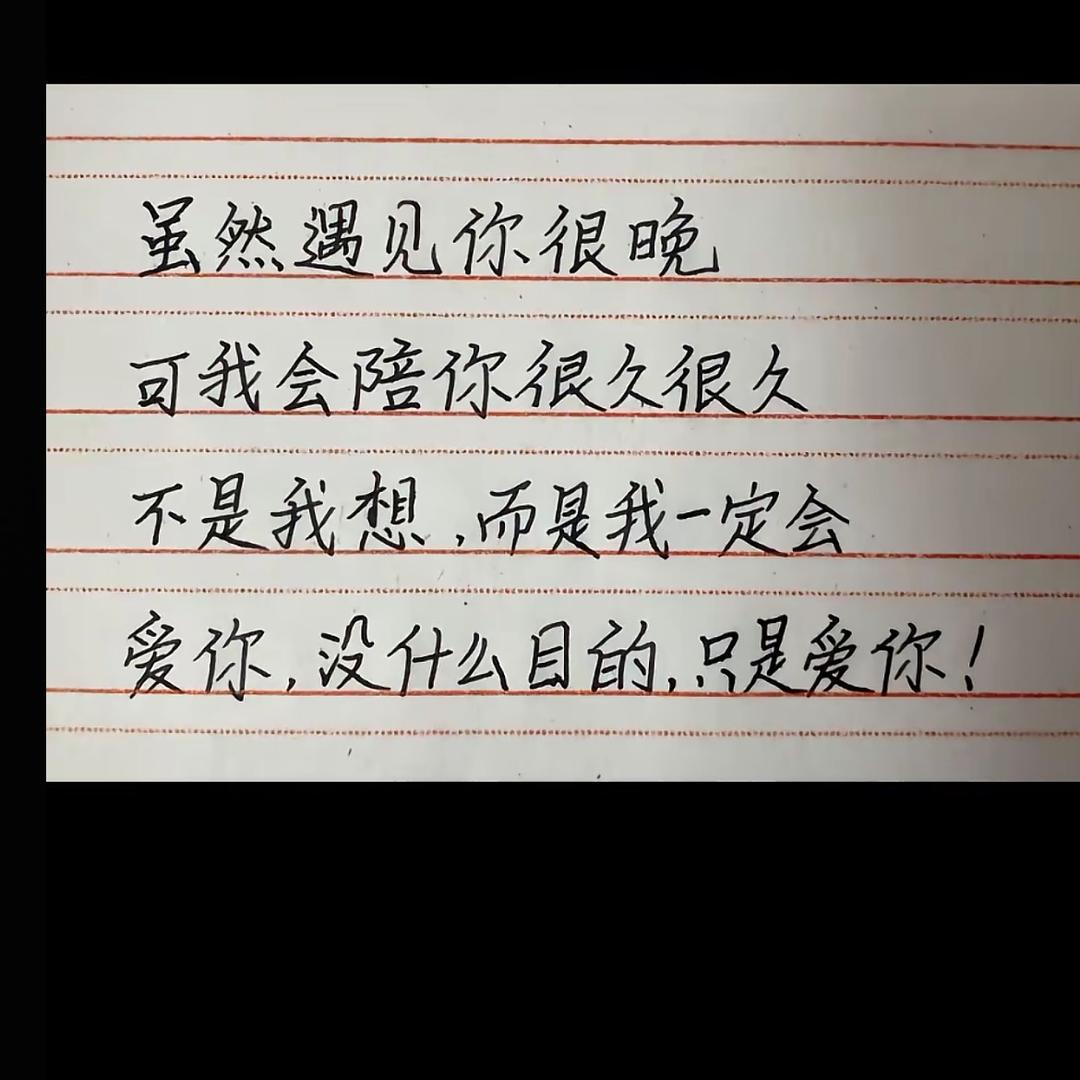 虽然遇见你很晚
可我会陪你很久很久
不是我想,而是我一定会
爱你,没什么目的,只是爱你!